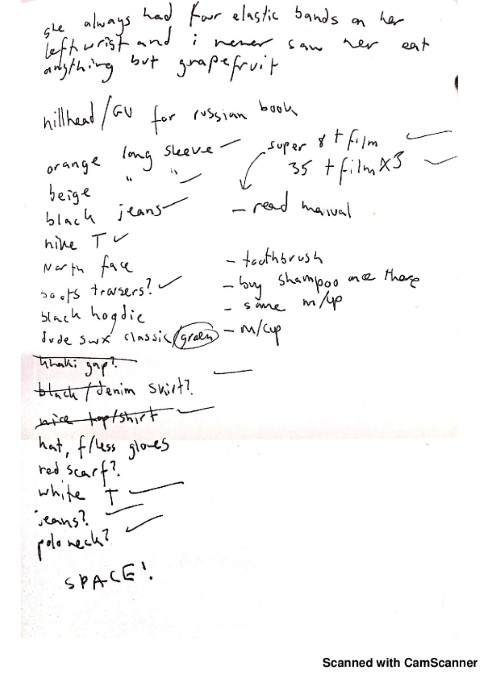 she always had four elastic bands on her
left wrist and i never saw her eat
anything but grapefruit
hillhead/GU for russian book
orange long sleeve
beige " "
black jeans
nike T
North face
boots trousers?
black hoodie
dude swx classic/green
khaki gap?
black/denim skirt?
nice top/shirt
hat, f/less gloves
red scarf?
white T
jeans?
polo neck?
SPACE!
super 8 + film
35 + film x3
- read manual
- toothbrush
- buy shampoo once there
- some m/up
- m/cup
Scanned with CamScanner